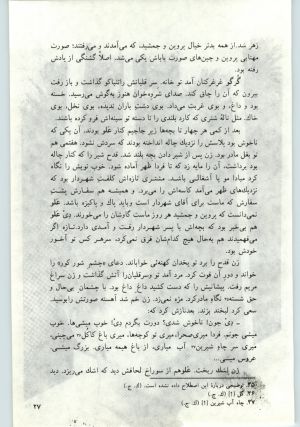 زهر شد. از همه بدتر خیال پروین و جمشید، که می‌آمدند و می‌رفتند؛ صورت
مهتابی پروین و چین‌های صورت باباش یکی می‌شد. اصلاً گشنگی از یادش
رفته بود.
گُرگو غرغرکنان آمد تو خانه. سر قلیانش را گذاشت و باز رفت
بیرون که آن را چاق کند. صدای شروه‌خوان هنوز به‌گوش می‌رسید. خسته
بود و داغ، و بوی غربت می‌داد. بوی دشت باران ندیده، بوی نخل، بوی
خاك. مثل نالهٔ شتری که کارد بلندی را تا دسته تو سینه‌اش فرو کرده باشند.
بعد از کمی هر چهار تا بچه‌ها زیر جاجیم کنار علو بودند، آن یکی که
ناخوش بود بالاسش را نزدیك چاله انداخته بودند که سردش نشود. هفتمی هم
تو بغل مادر بود. زن پس از شیر دادن بچه بلند شد. قدح شیر را که کنار چاله
بود برداشت، آن را مایه زد که تا فردا ظهر آماده شود. خوب تویش را نگاه
کرد مبادا مو یا آشغالی باشد. مشتری تازه‌اش کلفت شهردار بود که
نزدیك‌های ظهر می‌آمد کاسه‌اش را می‌برد. و همیشه هم سفارش پشت
سفارش که ماست برای آقای شهردار است وباید پاك و پاکیزه باشد. علو
نمی‌دانست که پروین و جمشید هر روز ماست گاوشان را می‌خورند. دِی علو
هم بی‌خبر بود که بچه‌اش با پسر شهردار رفت و آمدی دارد. تازه اگر
می‌فهمیدند هم به‌حال هیچ کدامشان فرق نمی‌کرد، سرهمر کس تو آخور
خودش بود.
زن قدح را برد تو یخدان کهنه‌ئی خواباند. دعای «چشم شور کوره» را
خواند و دور آن فوت کرد. مرد آمد تو وسرقلیان را آتش گذاشت و زن سراغ
مریم رفت. پیشانیش را که دست کشید داغ داغ بود. با چشمان بی‌حال و
حق شسته نگاه مادرکرد. مزه نمی‌زد. زن خم شد آهسته صورتش را بوسید.
سعی کرد لبخند بزند. بعد نازش کرد که:
ـ دِی جون! ناخوش شدی؟ دورت بگردم دِی! خوب میشی‌ها. خوب
میشی جونم، فردا میری صحرا، میری تو کوچه‌ها. میری باغ کاکل می‌چینی،
میری سر چاهِ شیرین آب میاری. از باغ هیمه میاری. بزرگ میشی.
عروس میشی...
زن اشك ریخت. علو هم از سوراخ لحافش دید که اشك می‌ریزد. دید
۳۵. توضیحی دربارهٔ این اصطلاح داده نشده است. (ك. ج.)
۳۶. گل (؟) (ك. ج.)
۳۷. چاه آب شیرین (؟) (ك. ج.)
۲۷